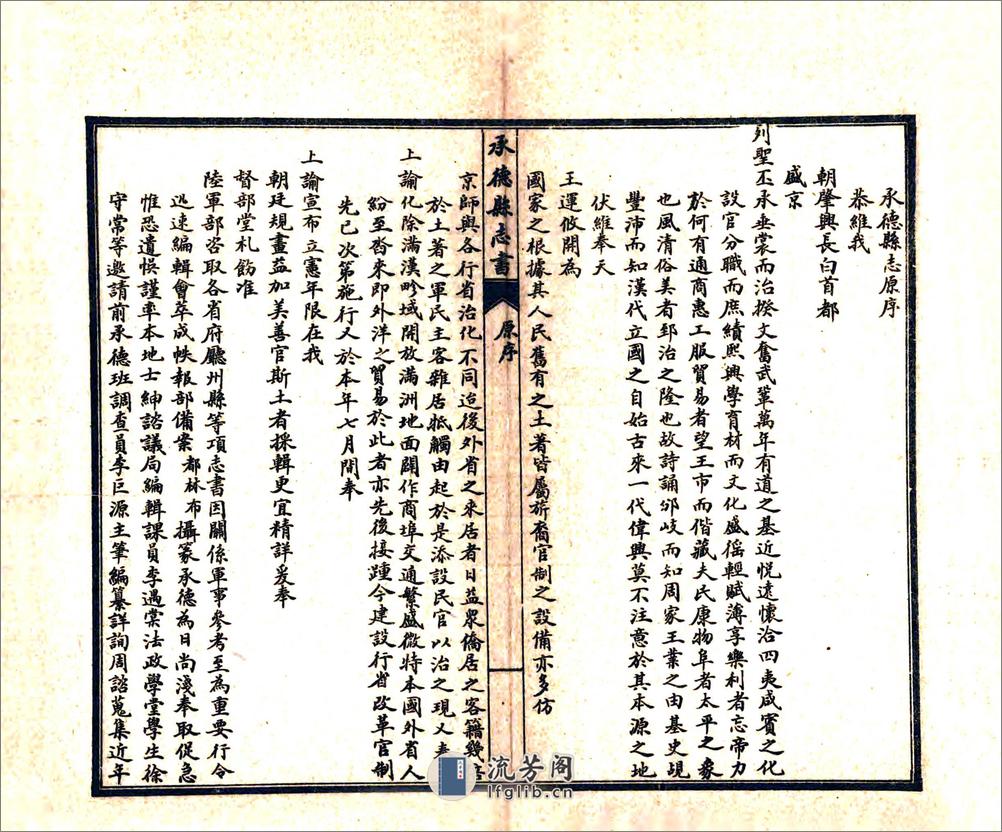 承德縣志原序
恭維我
朝肇興長白首都
盛京
列聖丕承垂裳而治揆文奮武鞏萬年有道之基近悅遠懷洽四夷咸賓之化
設官分職而庶績熙興學育材而文化盛徭輕賦薄享樂利者忘帝力
於何有通商惠工服貿易者望王市而偕藏夫民康物阜者太平之象
也風清俗美者郅治之隆也故詩誦邠岐而知周家王業之由基史覘
豐沛而知漢代立國之自始古來一代偉興莫不注意於其本源之地
伏維奉天
王運攸開為
國家之根據其人民舊有之土著皆屬旂裔官制之設備亦多仿
承德縣志書
原序
京師與各行省治化不同迨後外省之來居者日益眾僑居之客籍幾
於土著之軍民主客雜居牴觸由起於是添設民官以治之現又奉
上諭化除滿漢畛域開放滿洲地面闢作商埠交通繁盛微特本國外省人
紛至沓來即外洋之貿易於此者亦先後接踵今建設行省改革官制
先已次第施行又於本年七月間奉
上諭宣布立憲年限在我
朝廷規畫益加美善官斯土者採輯更宜精詳爰奉
督部堂札飭准
陸軍部咨取各省府廳州縣等項志書因關係軍事參考至為重要行令
迅速編輯會萃成帙報部備案都林布攝篆承德為日尚淺奉取促急
惟恐遺悞謹率本地士紳諮議局編輯課員李遇棠法政學堂學生徐
守常等邀請前承德班調查員李巨源主筆編纂詳詢周諮蒐集近年
流芳阁
lfglib.cn